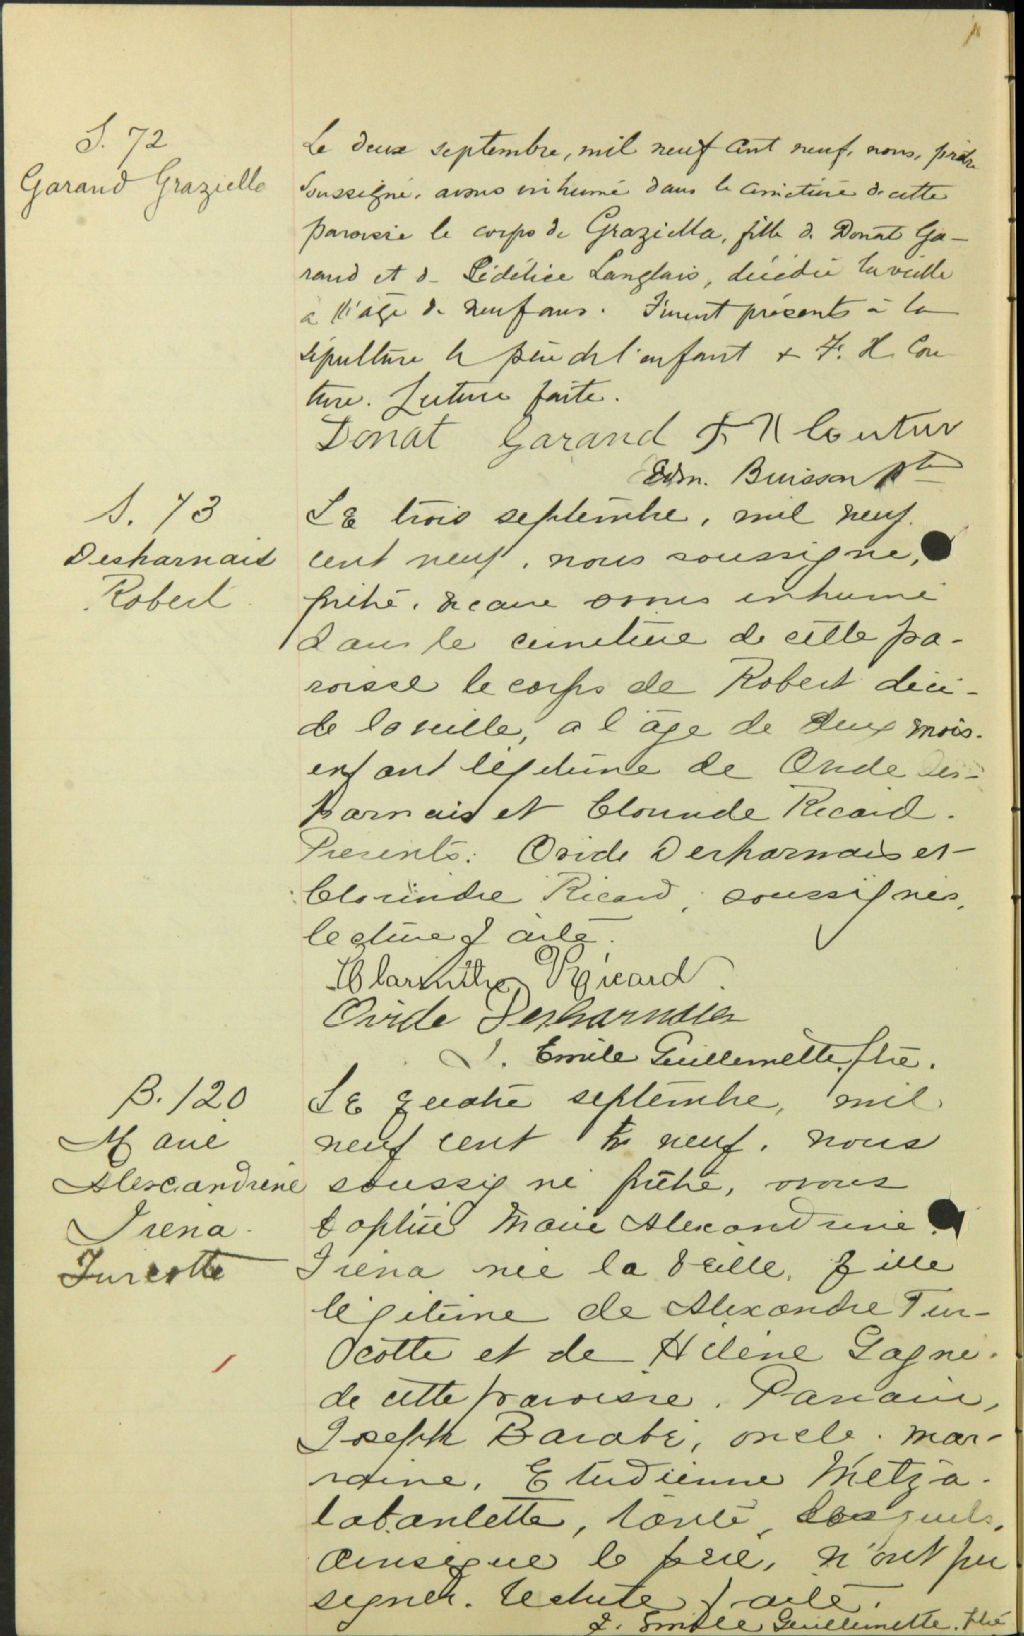 S. 72
Garand Grazielle
Le deux septembre, mil neuf cent neuf, nous, prêtre
soussigné, avons inhumé dans le cimetière de cette
paroisse le corps de Graziella, fille de Donat Ga-
rand et de Langlais, décédée la veille
à l'âge de neuf ans. Furent présents à la
sépulture le père de l'enfant & F. H. Cou-
ture. Lecture faite.
Donat Garand F. H Couture
Edm. Buisson Ptre
S. 73
Desharnais
Robert
Le trois septembre, mil neuf
cent neuf, nous soussigné,
prêtre, vicaire avons inhumé
dans le cimetière de cette pa-
roisse le corps de Robert décé-
dé la veille, a l'âge de deux mois.
enfant légitime de Ovide Des-
harnais et Clorinde Ricard.
Presents: Ovide Desharnais et
Clorindre Ricard, soussignés,
lecture faite.
Ricard
Ovide Desharnais
J. Emile Guillemette, ptre.
B. 120
Marie
Alexandrine
Irena
Turcotte
Le quatre septembre, mil
neuf cent neuf, nous
soussigné prêtre, avons
baptisé Marie Alexandrine
Irena née la veille, fille
légitime de Alexandre Tur-
cotte et de Hélène Gagné.
de cette paroisse. Parrain,
Joseph Barabé, oncle. mar-
raine, Etudienne Metzá-
labarlette, tante, lesquels,
ainsi que le père, n'ont pu
signer. Lecture faite.
J. Emile Guillemette. ptre